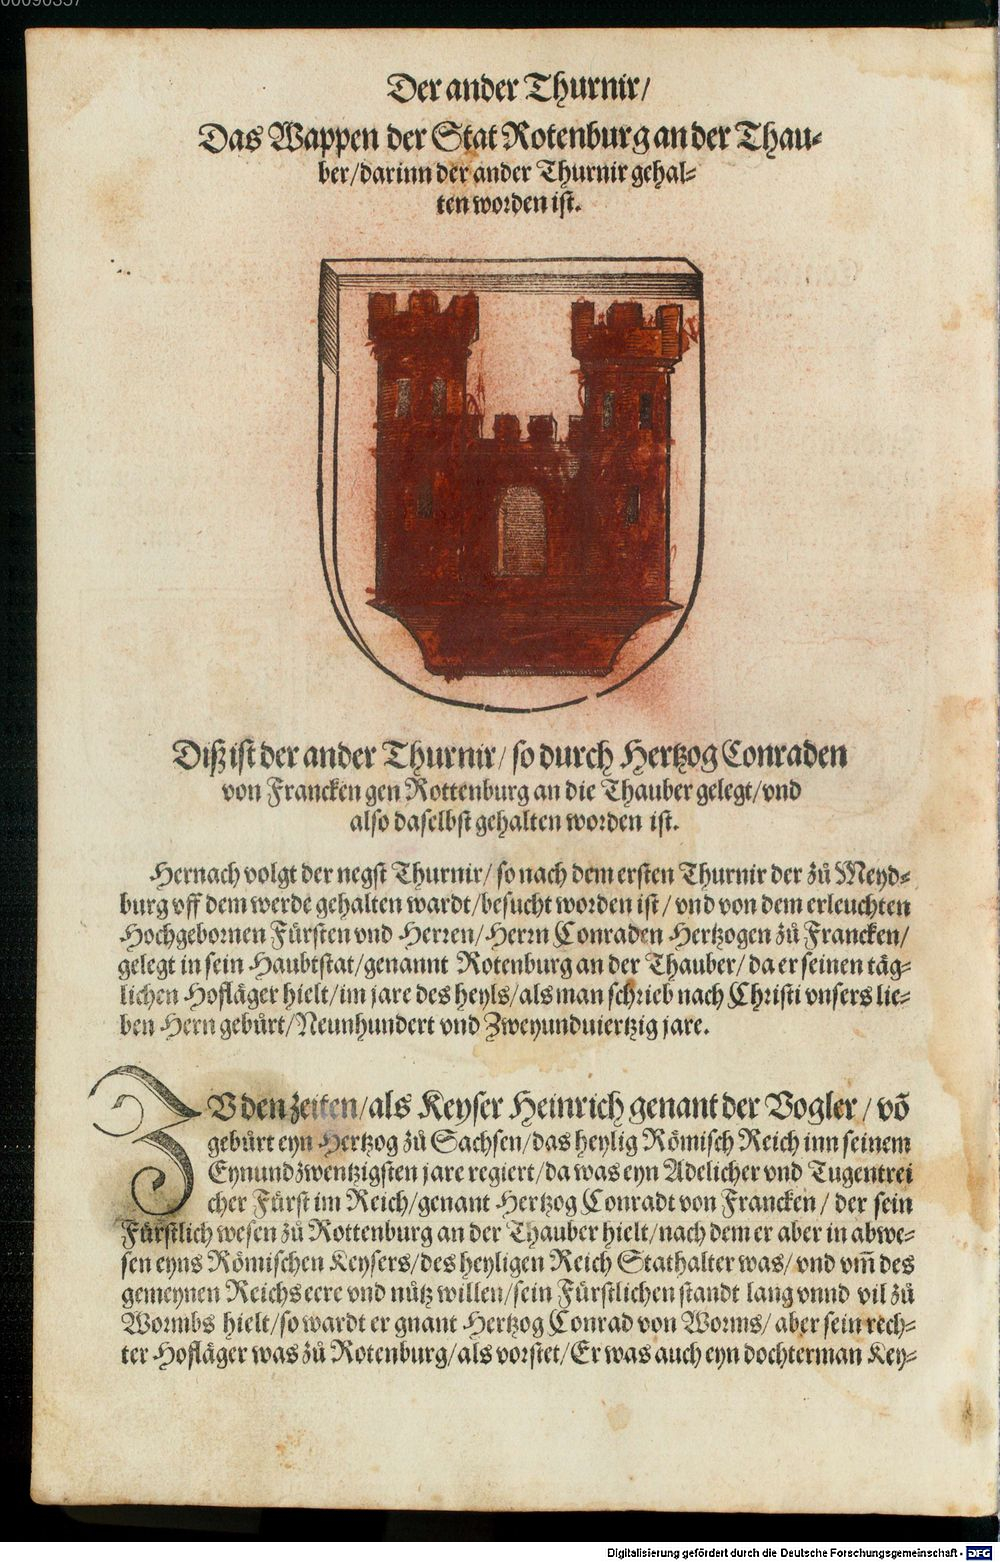 00090357
Der ander Thurnir/
Das Wappen der Stat Rotenburg an der Thau⸗
ber/darinn der ander Thurnir gehal⸗
ten worden ist.
Diß ist der ander Thurnir/ so durch Hertzog Conraden
von Francken gen Rottenburg an die Thauber gelegt/vnd
also daselbst gehalten worden ist.
Hernach volgt der negst Thurnir/ so nach dem ersten Thurnir der zů Meyd⸗
burg vff dem werde gehalten wardt/besucht worden ist/ vnd von dem erleuchten
Hochgebornen Fürsten vnd Herren/ Herrn Conraden Hertzogen zů Francken/
gelegt in sein Haubtstat/genannt Rotenburg an der Thauber/ da er seinen täg⸗
lichen Hofläger hielt/im jare des heyls/als man schrieb nach Christi vnsers lie⸗
ben Hern gebůrt/Neunhundert vnd Zweyunduiertzig jare.
ZV den zeiten/als Keyser Heinrich genant der Vogler/ võ
gebůrt eyn Hertzog zů Sachsen/das heylig Römisch Reich inn seinem
Eynundzwentzigsten jare regiert/da was eyn Adelicher vnd Tugentrei
cher Fürst im Reich/genant Hertzog Conradt von Francken/ der sein
Fürstlich wesen zů Rottenburg an der Thauber hielt/nach dem er aber in abwe⸗
sen eyns Römischen Keysers/des heyligen Reich Stathalter was/ vnd vm̃ des
gemeynen Reichs eere vnd nůtz willen/sein Fürstlichen standt lang vnnd vil zů
Wormbs hielt/so wardt er gnant Hertzog Conrad von Worms/ aber sein rech⸗
ter Hofläger was zů Rotenburg/als vorstet/Er was auch eyn dochterman Key⸗
Digitalisierung gefördert durch die Deutsche Forschungsgemeinschaft - DFG